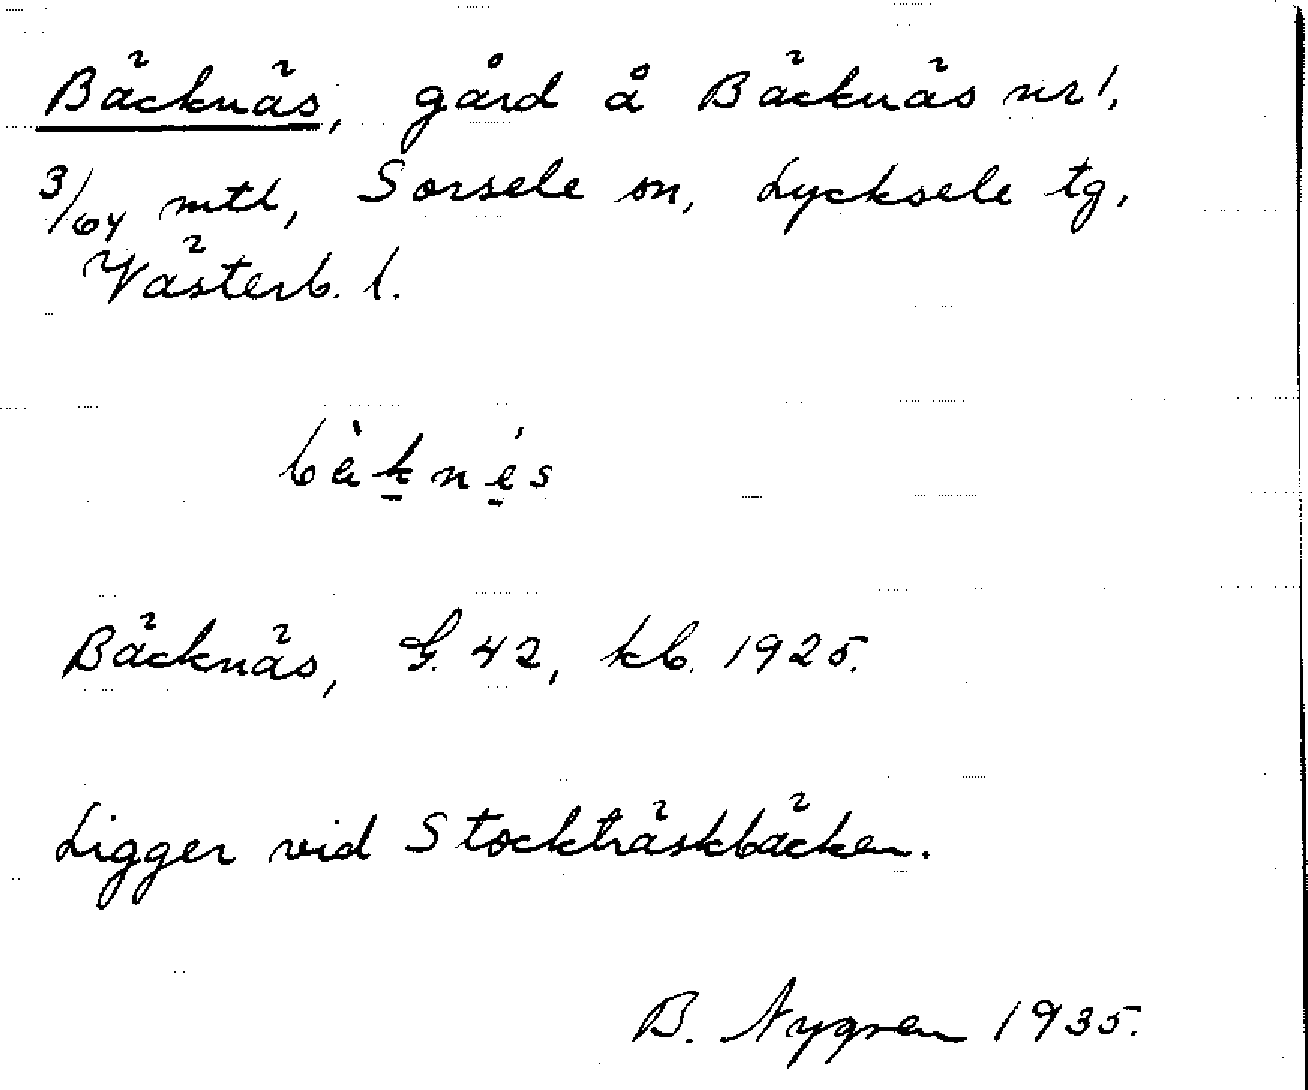 Bäcknäs, gård å Bäcknäs nr 1,
3/64 mtl, Sorsele sn, Lycksele tg,
Västerb. l.
bèknés
Bäcknäs, G. 42, kb. 1925.
Ligger vid Stockträskbäcken.
B. Nygren 1935.